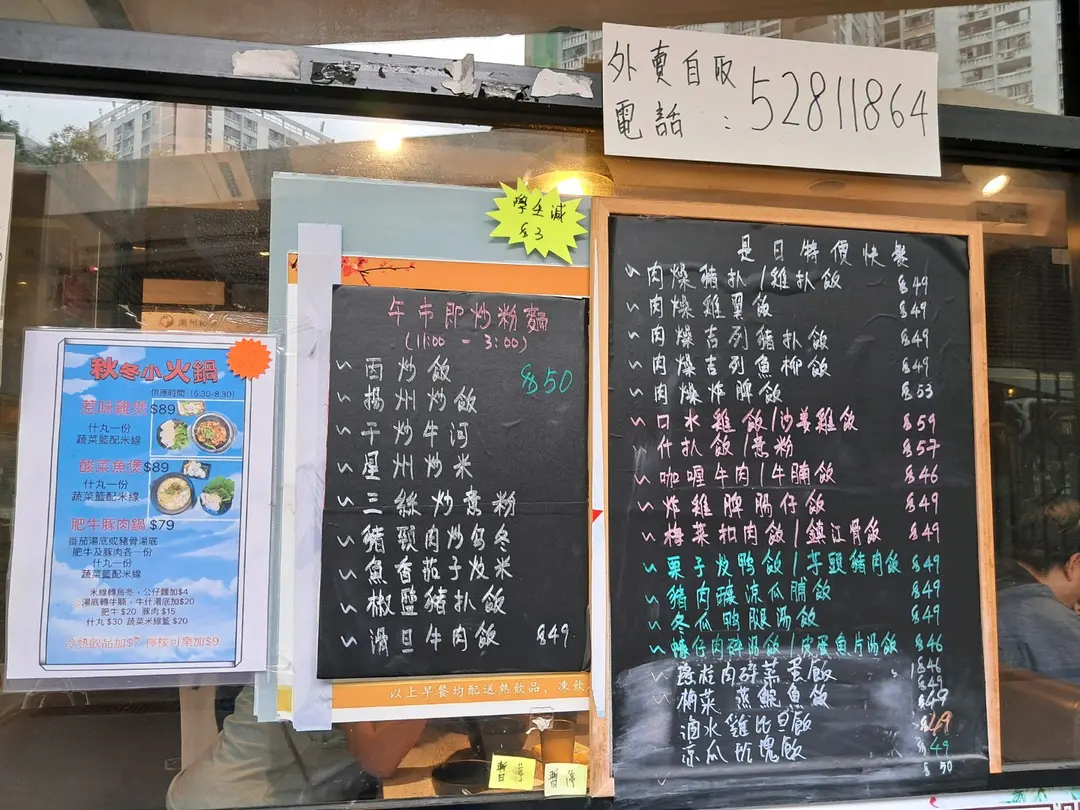 外賣自取
電話：52811864
學生減
$3
秋冬小火鍋
供應時間 (5:30-8:30)
惹味雞煲 $89
什丸一份
蔬菜籃配米線
酸菜魚煲 $89
什丸一份
蔬菜籃配米線
肥牛豚肉鍋 $79
番茄湯底或豬骨湯底
肥牛及豚肉各一份
什丸一份
蔬菜籃配米線
米線轉烏冬，公仔麵加$4
湯底轉牛腩，牛什湯底加$20
肥牛 $20 豚肉 $15
什丸 $30 蔬菜米線籃 $20
冷燒飲品加$7 檸檬可樂加$9
午市即炒粉麵
(11:00 - 3:00)
西炒飯 $50
揚州炒飯
干炒牛河
星州炒米
三絲炒意粉
豬頸肉炒烏冬
魚香茄子炆米
椒鹽豬扒飯
滑旦牛肉飯 $49
以上早餐均配送熱飲品，凍飲
暫停
暫停
是日特價快餐
肉燥豬扒/雞扒飯 $49
肉燥雞翼飯 $49
肉燥吉列豬扒飯 $49
肉燥吉列魚柳飯 $49
肉燥炸脾飯 $53
口水雞飯/沙姜雞飯 $59
什扒飯/意粉 $57
咖喱牛肉/牛腩飯 $46
炸雞脾腸仔飯 $49
梅菜扣肉飯/鎮江骨飯 $49
栗子炆鴨飯/芋頭豬肉飯 $49
豬肉釀涼瓜脯飯 $49
冬瓜鴨腿湯飯 $49
肉碎湯飯/皮蛋魚片湯飯 $46
肉碎菜蛋飯 $46
梅菜蒸鯇魚飯 $49
滷水雞比旦飯 $49
涼瓜 飯 $49
$50